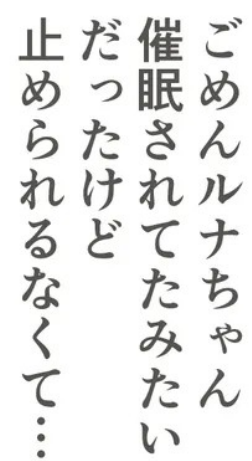 ごめんルナちゃん
催眠されてたみたい
だったけど
止められるなくて…